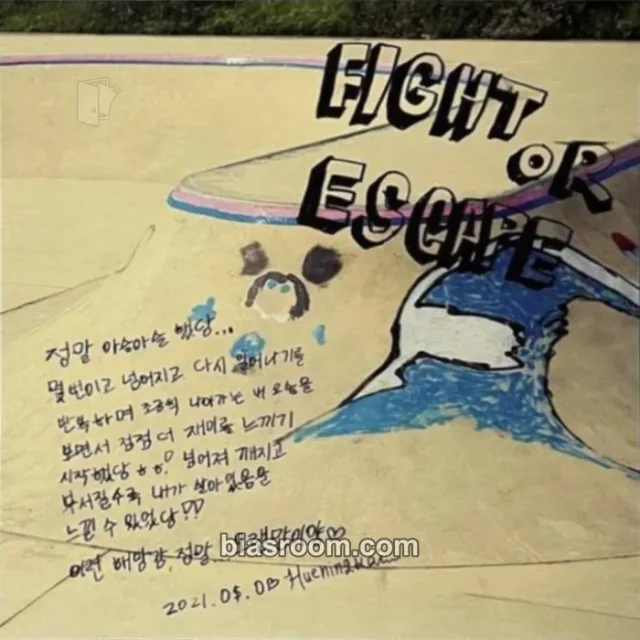 FIGHT
OR
ESCAPE
정말 아슬아슬 했당...
몇번이고 넘어지고 다시 일어나기를
반복하며 조금씩 나아가는 내 모습을
보면서 점점 더 재미를 느끼기
시작했당ㅎㅎ! 넘어져 깨지고
부서질수록 내가 살아있음을
느낄 수 있었당!!
이런 해방감, 정말... 오랜만이야♡
biasroom.com
2021.05.03 Hueningkai